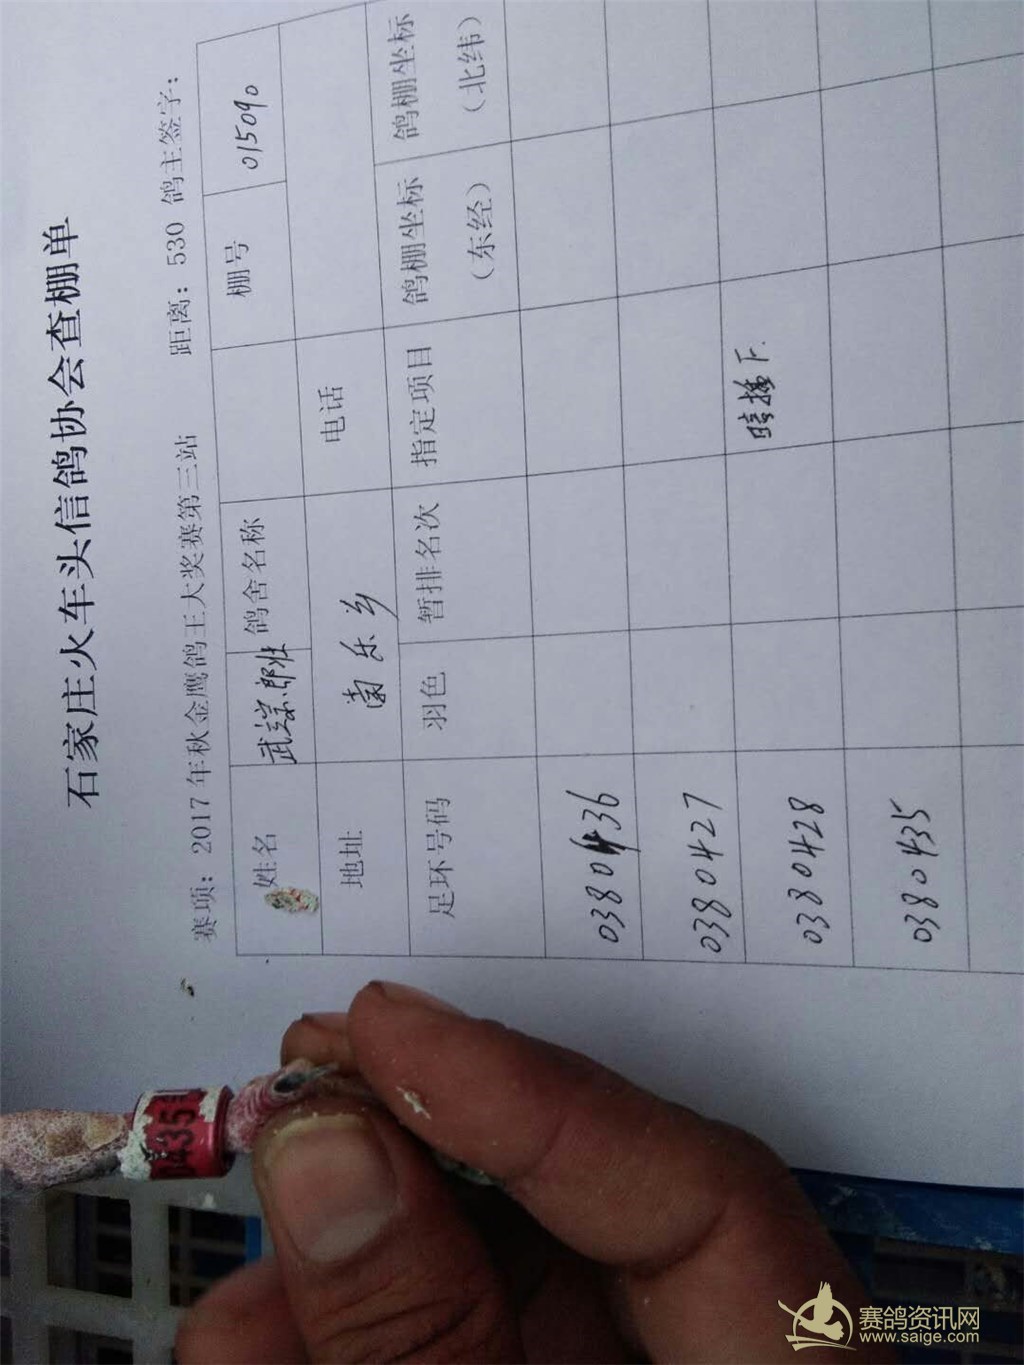 石家庄火车头信鸽协会查棚单
赛项：2017年秋金鹰鸽王大奖赛第三站 距离：530 鸽主签字：
姓名 武宗郎壮 鸽舍名称 棚号 015090
地址 南乐乡 电话
足环号码 羽色 暂排名次 指定项目 鸽棚坐标（东经） 鸽棚坐标（北纬）
0380436
0380427
0380428
0380435
0435
赛鸽资讯网
www.saige.com